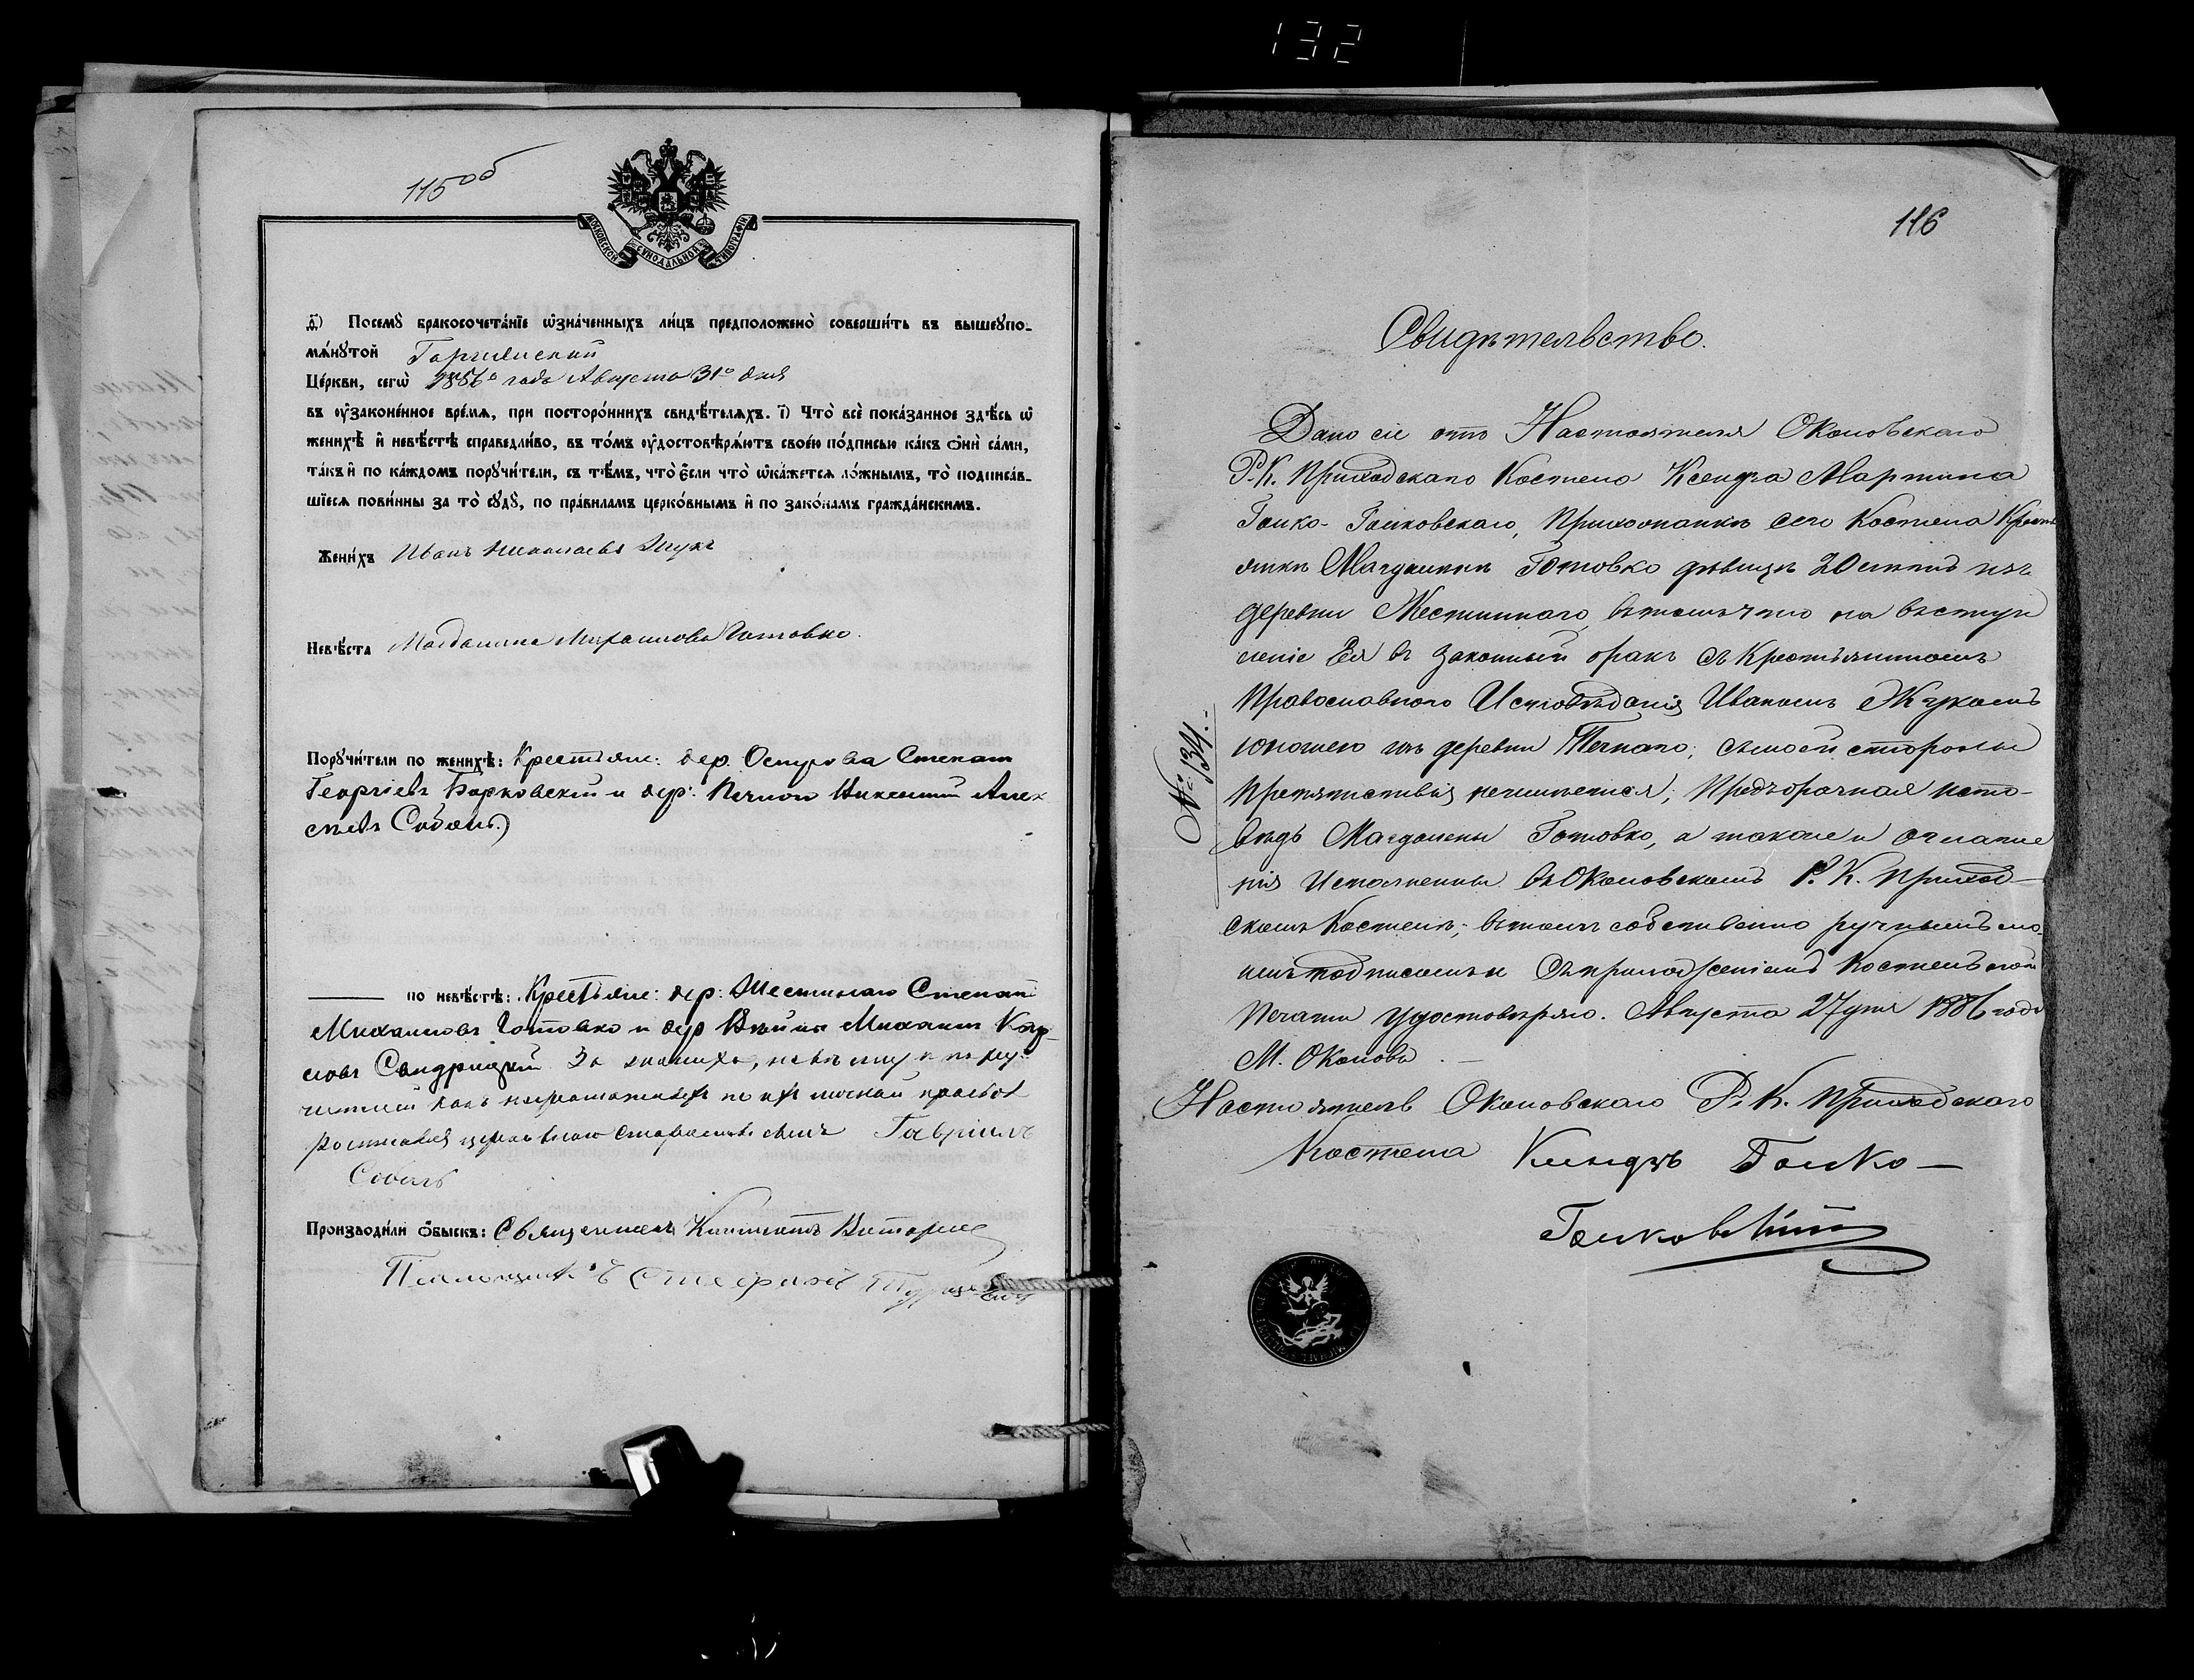 132
115об
МОСКОВСКОЙ СУНОДАЛЬНОЙ ТИПОГРАФІИ
Посемꙋ̀ бракосочета́нїе ѡ҆зна́ченныхъ ли́цъ предположено̀ соверши́ть въ вышеꙋпо-
мѧ́нꙋтой
Це́ркви, сегѡ̀ 1886го года Августа 31го дня
въ ᲂу҆зако́ненное вре́мѧ, при посторо́ннихъ свидѣ́телѧхъ. і҃) Что̀ всѐ пока́занное здѣ́сь ѡ҆
женихѣ̀ и҆ невѣ́стѣ справедли́во, въ то́мъ ᲂу҆достовѣрѧ́ютъ свое́ю по́дписью ка́къ ѻ҆нѝ са́ми,
та́къ и҆ по ка́ждомъ порꙋчи́тели, съ тѣ́мъ, что̀ є҆́сли что̀ ѡ҆ка́жетсѧ ло́жнымъ, то̀ подписа́в-
шїесѧ пови́нны за то̀ сꙋдꙋ̀, по пра́виламъ церко́внымъ и҆ по зако́намъ гражда́нскимъ.
Жени́хъ Иванъ Николаевъ Жукъ
Невѣ́ста Магдалина Михаилова Готовко.
Порꙋчи́тели по женихѣ̀: Крестьяне: дер. Острова Степанъ
Георгіевъ Барковскій и дер: Печног Викентій Алек-
сѣевъ Соболь.)
по невѣ́стѣ: Крестьяне: дер: Жестиннаго Степанъ
Михаиловъ Готовко и дер Михаилъ Кар-
ловъ За жениха, невѣсту и пору-
чителей какъ неграмотныхъ по ихъ личной просьбѣ
росписался церковный Гавріилъ
Соболь
Производи́ли ѻ҆́быскъ: Священникъ
Псаломщикъ Стефанъ
116
Свидѣтельство.
Дано сіе отъ Настоятеля Околовскаго
Р.К. Приходскаго Костела Ксендза Мартина
Голко-Голковскаго, Прихожанкѣ сего Костела Крест
янкѣ Магдалинѣ Готовко дѣвицѣ 20 лѣтъ изъ
деревни Жестиннаго, въ томъ что на вступ
леніе Ея въ законный бракъ съ Крестьяниномъ
Православнаго Исповѣданія Иваномъ Жукомъ
юношею изъ деревни Печнаго; съ моей стороны
Препятствія неимѣется; Предбрачная испо-
вѣдь Магдалены Готовко, а также и оглаше
нія Исполнены въ Околовскомъ Р.К. Приход-
скомъ Костелѣ; въ томъ собственно ручнымъ мо-
имъ подписомъ и съ приложеніемъ Костельной
Печати Удостовѣряю. Августа 27 дня 1886 года
М. Околово.
№ 134.
Настоятель Околовскаго Р.К. Приходскаго
Костела Ксендзъ Голко-
Голковскій